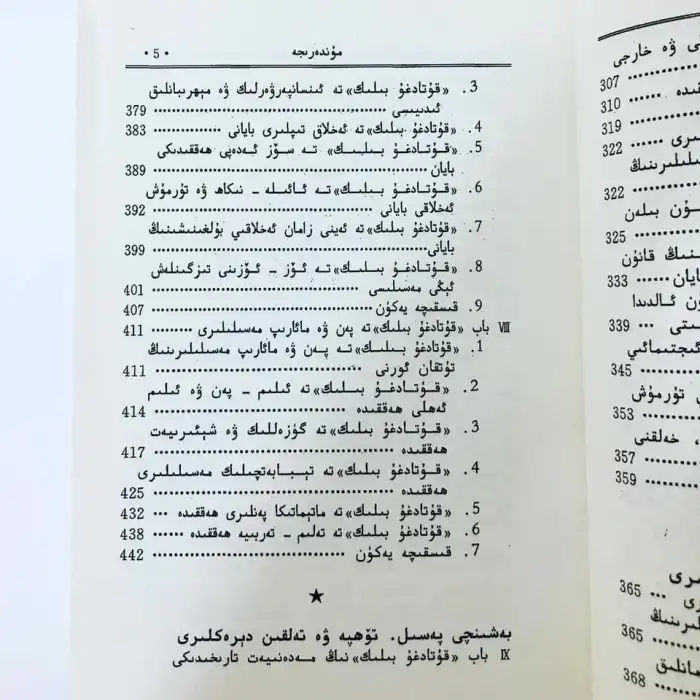 مۇندەرىجە · 5 ·
3. «قۇتادغۇ بىلىك» تە ئىنسانپەرۋەرلىك ۋە مېھرىبانلىق
ئىدىيىسى ······ 379
4. «قۇتادغۇ بىلىك» تە ئەخلاق تىپلىرى بايانى ······ 383
5. «قۇتادغۇ بىلىك» تە سۆز ئەدەپى ھەققىدىكى
بايان ······ 389
6. «قۇتادغۇ بىلىك» تە ئائىلە - نىكاھ ۋە تۇرمۇش
ئەخلاقى بايانى ······ 392
7. «قۇتادغۇ بىلىك» تە ئەينى زامان ئەخلاقىي بۇلغىنىشىنىڭ
بايانى ······ 399
8. «قۇتادغۇ بىلىك» تە ئۆز - ئۆزىنى تىزگىنلەش
ئېڭى مەسىلىسى ······ 401
9. قىسقىچە يەكۈن ······ 407
Ⅷ باب «قۇتادغۇ بىلىك» تە پەن ۋە مائارىپ مەسىلىلىرى ······ 411
1. «قۇتادغۇ بىلىك» تە پەن ۋە مائارىپ مەسىلىلىرىنىڭ
تۇتقان ئورنى ······ 411
2. «قۇتادغۇ بىلىك» تە ئىلىم - پەن ۋە ئىلىم
ئەھلى ھەققىدە ······ 414
3. «قۇتادغۇ بىلىك» تە گۈزەللىك ۋە شېئىرىيەت
ھەققىدە ······ 417
4. «قۇتادغۇ بىلىك» تە تېبابەتچىلىك مەسىلىلىرى
ھەققىدە ······ 425
5. «قۇتادغۇ بىلىك» تە ماتېماتىكا پەنلىرى ھەققىدە ··· 432
6. «قۇتادغۇ بىلىك» تە تەلىم - تەربىيە ھەققىدە ······ 438
7. قىسقىچە يەكۈن ······ 442
★
بەشىنچى پەسىل. تۆھپە ۋە تەلقىن دېرەكلىرى
Ⅸ باب «قۇتادغۇ بىلىك» نىڭ مەدەنىيەت تارىخىدىكى
ى ۋە خارجى
307
قىدە ······ 310
319
ىرى ······ 322
ىلىلىرىنىڭ
322
ۇن بىلەن
325
ىنىڭ قانۇن
بايان ······ 333
ئالدىدا
ىستى ··· 339
ئىجتىمائىي
345
ى تۇرمۇش
353
، خەلقنى
357
359
ىرى
365
ىلىرىنىڭ
365
368